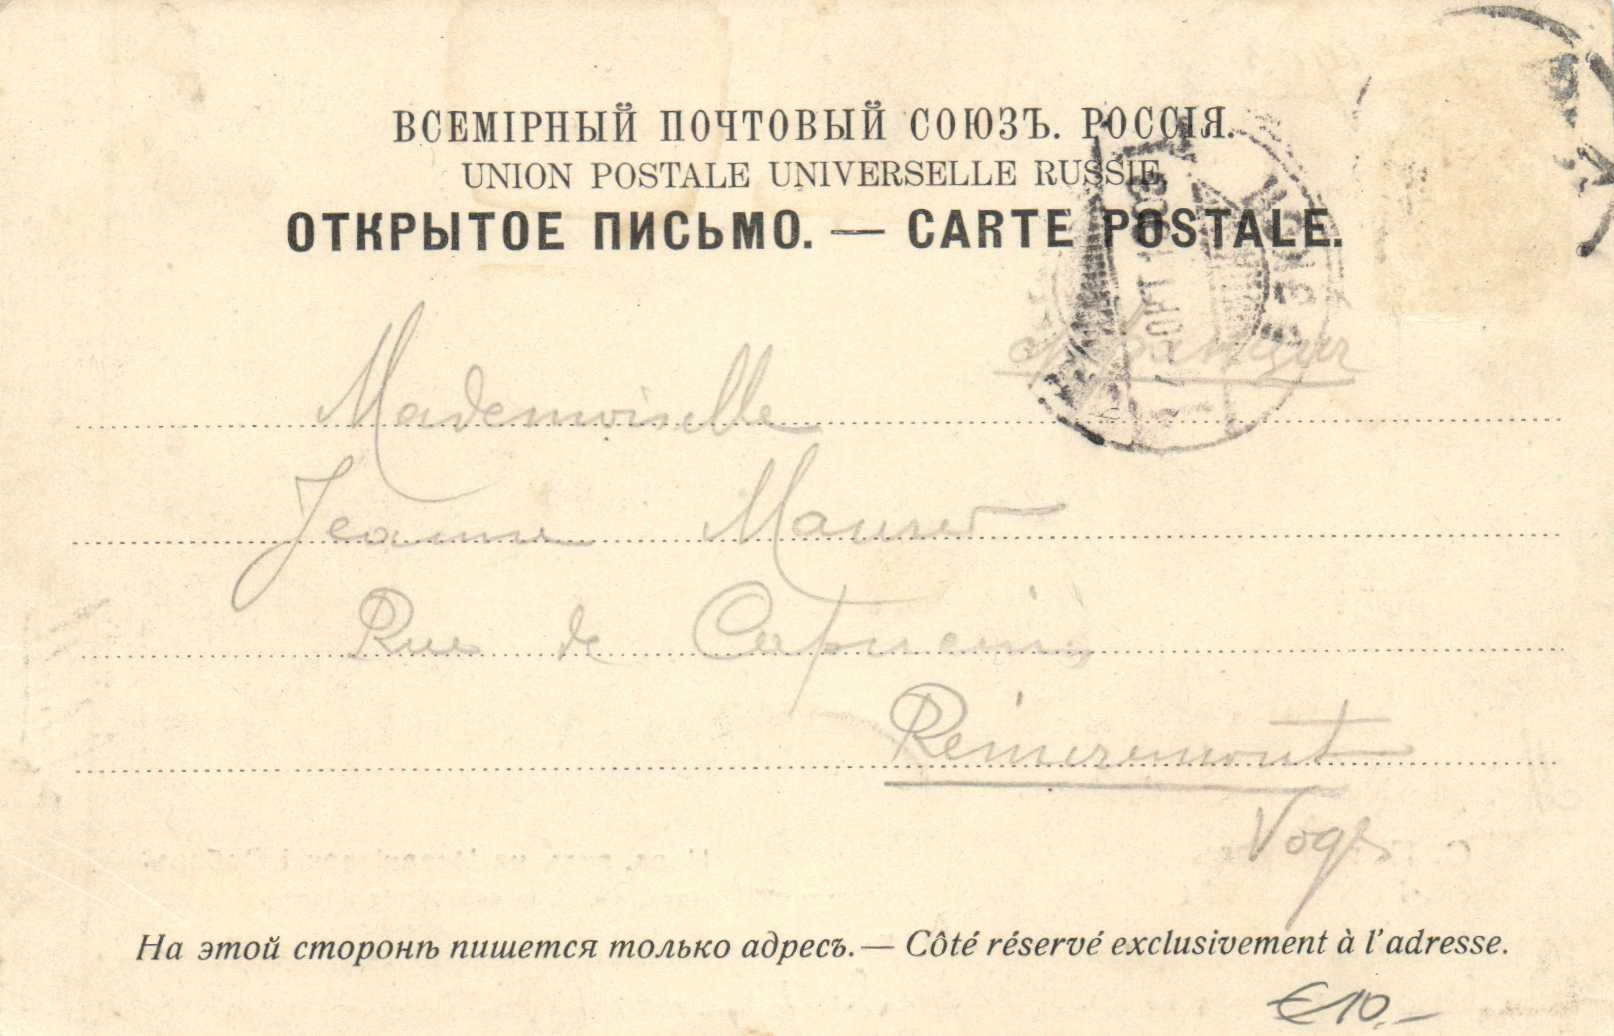 ВСЕМІРНЫЙ ПОЧТОВЫЙ СОЮЗЪ. РОССІЯ.
UNION POSTALE UNIVERSELLE RUSSIE.
ОТКРЫТОЕ ПИСЬМО. — CARTE POSTALE.
Mademoiselle
Jeanne Maurer
Rue de Capucins
Remiremont
Vosges
На этой сторонѣ пишется только адресъ. — Côté réservé exclusivement à l'adresse.
€10,-